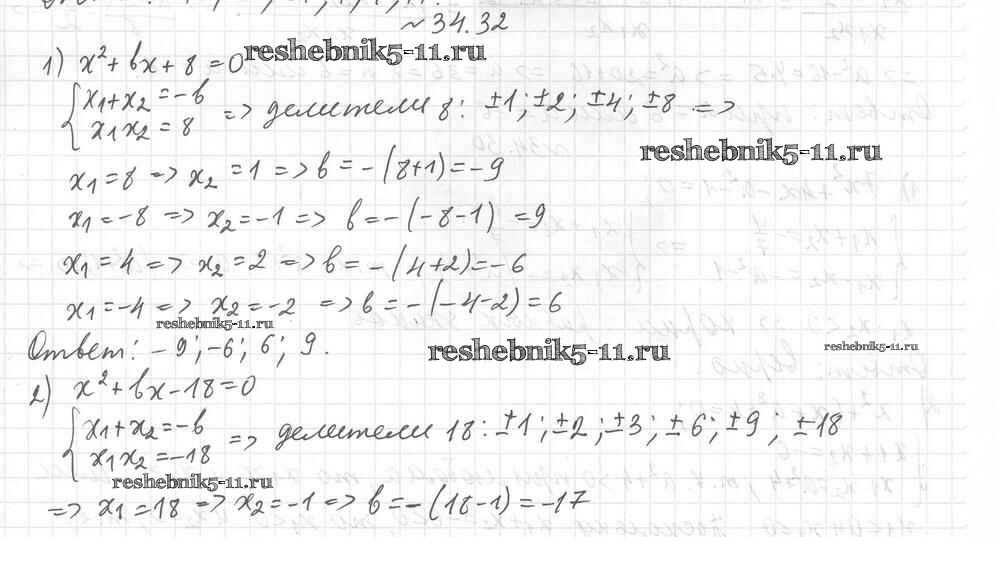 ~ 34.32
reshebnik5-11.ru
1) x² + bx + 8 = 0
{ x₁ + x₂ = -b
x₁x₂ = 8 => делители 8: ±1; ±2; ±4; ±8 =>
reshebnik5-11.ru
x₁ = 8 => x₂ = 1 => b = -(8+1) = -9
x₁ = -8 => x₂ = -1 => b = -(-8-1) = 9
x₁ = 4 => x₂ = 2 => b = -(4+2) = -6
x₁ = -4 => x₂ = -2 => b = -(-4-2) = 6
reshebnik5-11.ru
Ответ: -9; -6; 6; 9.
reshebnik5-11.ru
reshebnik5-11.ru
2) x² + bx - 18 = 0
{ x₁ + x₂ = -b
x₁x₂ = -18 => делители 18: ±1; ±2; ±3; ±6; ±9; ±18
reshebnik5-11.ru
=> x₁ = 18 => x₂ = -1 => b = -(18-1) = -17